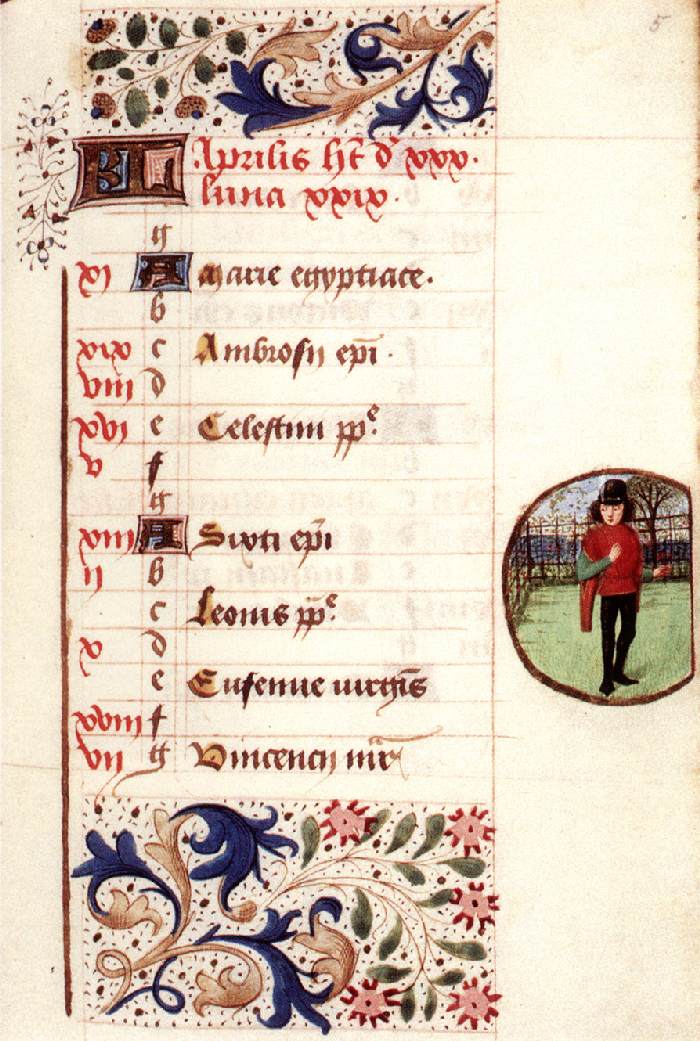 5
KL Aprilis ht d' xxx.
luna xxix.
g
xi A marie egyptiace.
b
xix c Ambrosij epi.
viii d
xvi e Celestini pp^e
v f
g
xiii A Sixti epi
ii b
c Leonis pp^e
x d
e Eufemie uirgis
xviii f
vii g Vincencij mr